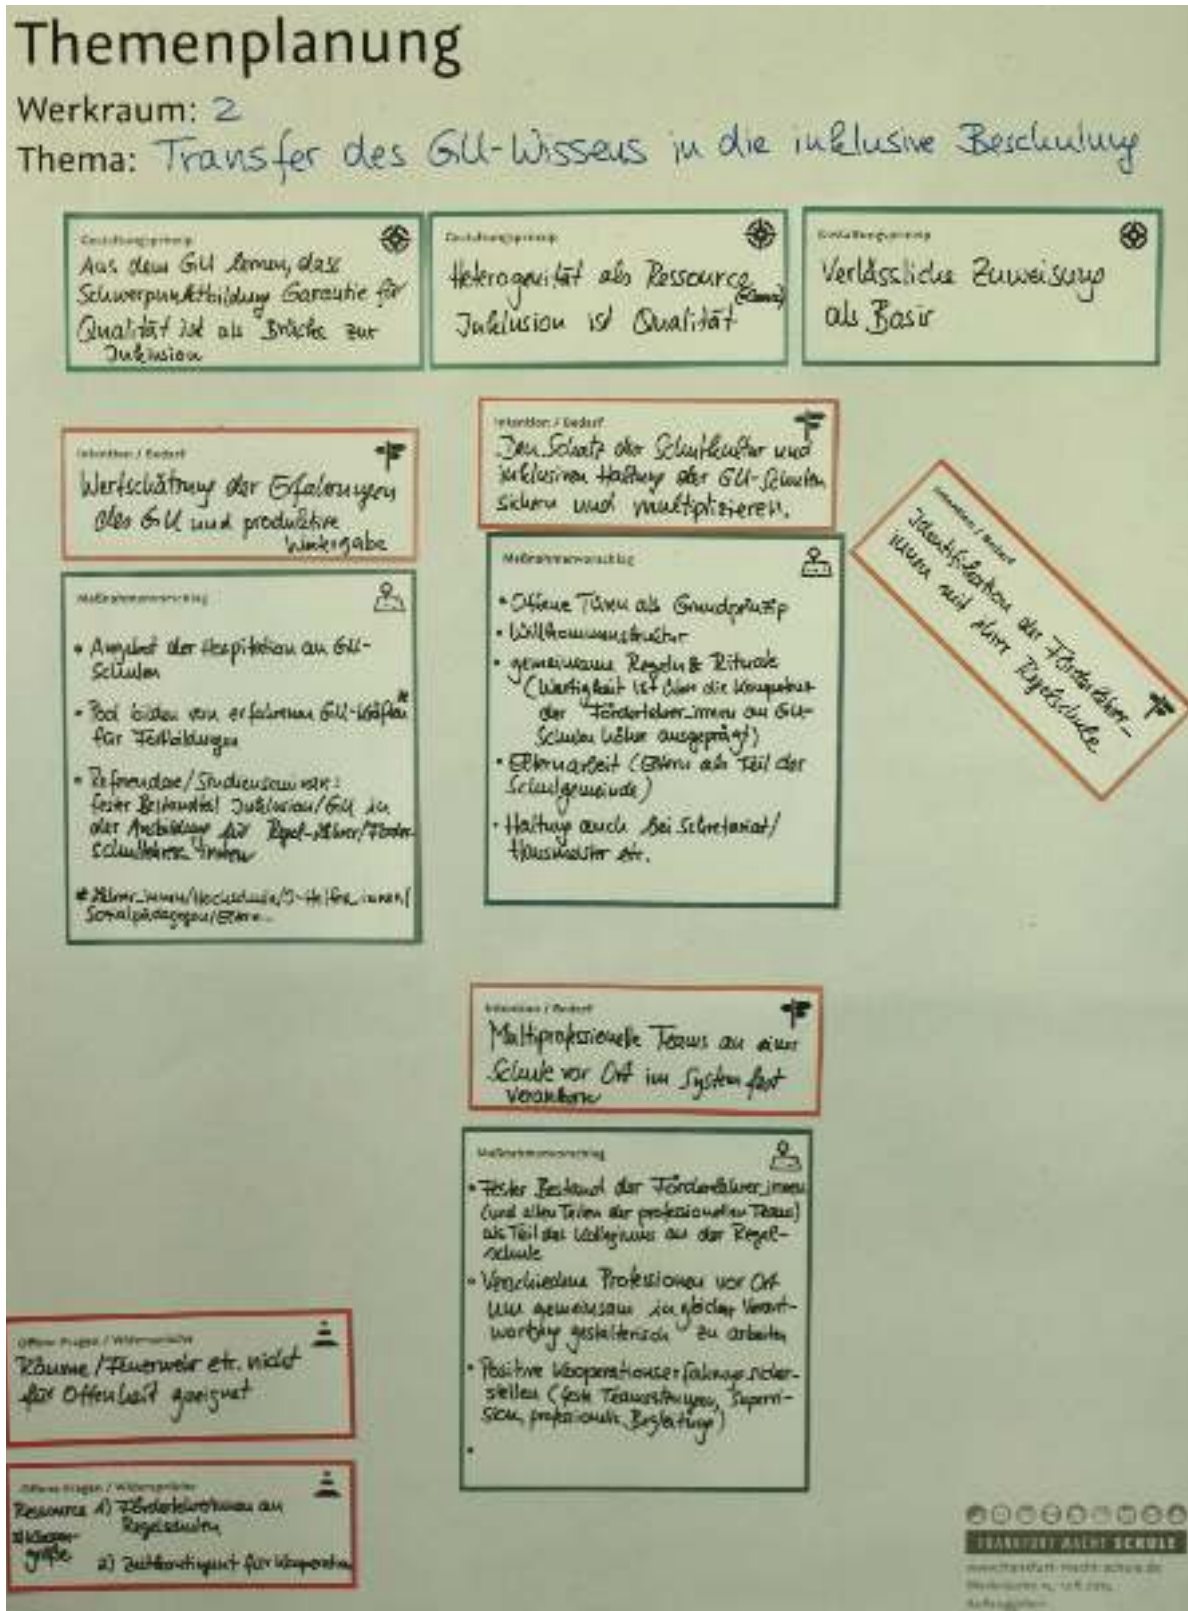 Themenplanung
Werkraum: 2
Thema: Transfer des GU-Wissens in die inklusive Beschulung
Gestaltungsprinzip
Aus dem GU lernen, dass
Schwerpunktbildung Garantie für
Qualität ist als Brücke zur
Inklusion
Gestaltungsprinzip
Heterogenität als Ressource
Inklusion ist Qualität
Gestaltungsprinzip
Verlässliche Zuweisung
als Basis
Intention / Bedarf
Wertschätzung der Erfahrungen
des GU und produktive
Weitergabe
Maßnahmenvorschlag
• Angebot der Hospitation an GU-
Schulen
• Pool bilden von erfahrenen GU-Kräften*
für Fortbildungen
• Referendare/Studienseminare:
fester Bestandteil Inklusion/GU in
der Ausbildung für Regel-Lehrer/Förder-
schullehrer_innen
* Lehrer_innen/Hochschule/I-Helfer_innen/
Sozialpädagogen/Eltern...
Intention / Bedarf
Den Schatz der Schulkultur und
inklusiven Haltung der GU-Schulen
sichern und multiplizieren.
Maßnahmenvorschlag
• Offene Türen als Grundprinzip
• Willkommensstruktur
• gemeinsame Regeln & Rituale
(Wertigkeit ist über die Kompetenz
der Förderlehrer_innen an GU-
Schulen höher ausgeprägt)
• Elternarbeit (Eltern als Teil der
Schulgemeinde)
• Haltung auch bei Sekretariat/
Hausmeister etc.
Intention / Bedarf
Identifikation der Förderlehrer_
innen mit ihrer Regelschule
Intention / Bedarf
Multiprofessionelle Teams an einer
Schule vor Ort im System fest
verankern
Maßnahmenvorschlag
• Fester Bestand der Förderlehrer_innen
(und allen Teilen der professionellen Teams)
als Teil des Kollegiums an der Regel-
schule
• Verschiedene Professionen vor Ort
um gemeinsam in gleicher Verant-
wortung gestalterisch zu arbeiten
• Positive Kooperationserfahrung sicher-
stellen (feste Teamsitzungen, Supervi-
sion, professionelle Begleitung)
•
Offene Fragen / Widersprüche
Räume / Feuerwehr etc. nicht
für Offenheit geeignet
Offene Fragen / Widersprüche
Ressource 1) Förderlehrer_innen an
Regelschulen
größe 2) Zeitkontingent für Kooperation
FRANKFURT MACHT SCHULE
www.frankfurt-macht-schule.de